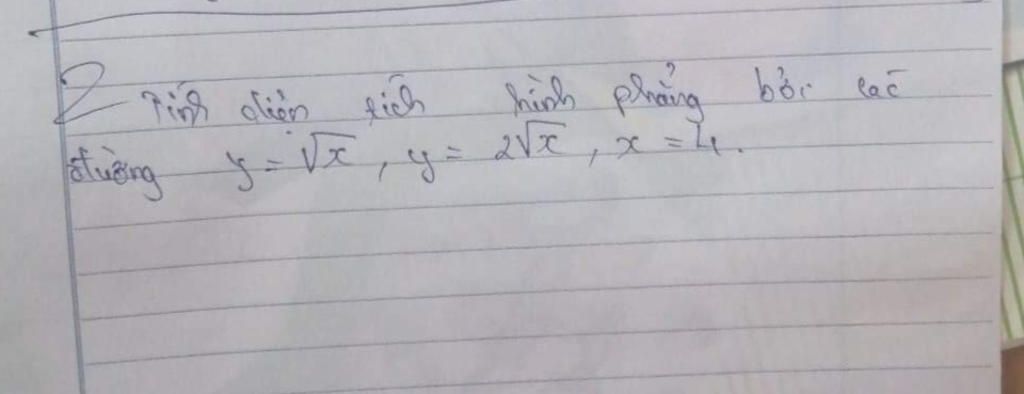 2 Tính diện tích hình phẳng bởi các
đường y = √x , y = 2√x , x = 4.